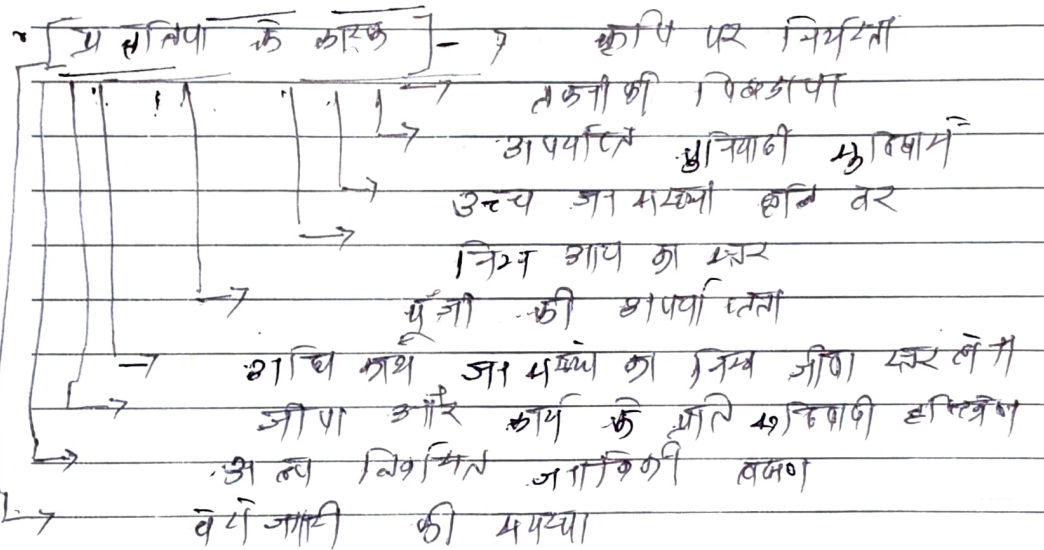 प्रचलिया के कारक - कृषि पर निर्भरता
तकनीकी पिछडापन
अपर्याप्त बुनियादी सुविधायें
उच्च जनसंख्या वृद्धि दर
निम्न आय का स्तर
पूँजी की अपर्याप्तता
अधिकांश जनसंख्या का निम्न जीवन स्तर होना
जीवन और कार्य के प्रति रूढिवादी दृष्टिकोण
अल्प विकसित जनांकिकी लक्षण
बेरोजगारी की समस्या